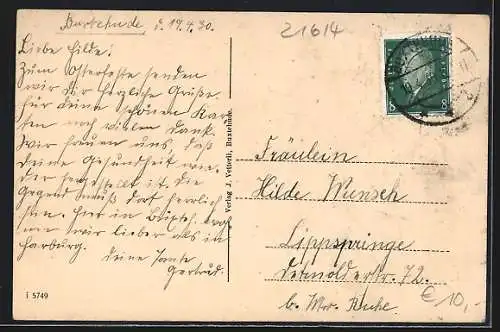 Buxtehude d. 19.4.30.
21614
Liebe Hilde!
Zum Osterfeste senden
wir Dir herzliche Grüße.
Für deine schönen Kar-
ten noch vielen Dank.
Wir freuen uns, daß
deine Gesundheit wie-
der hergestellt ist. Die
Gegend muß dort herrlich
sein. Hier in Buxteh. woh-
nen wir lieber als in
Harburg.
Deine Tante
Gertrud.
i 5749
Verlag J. Vetterli, Buxtehude.
8 8
Fräulein
Hilde Wunsch
Lippspringe
Detmolderstr. 72.
b. Wwe.
€ 10,-